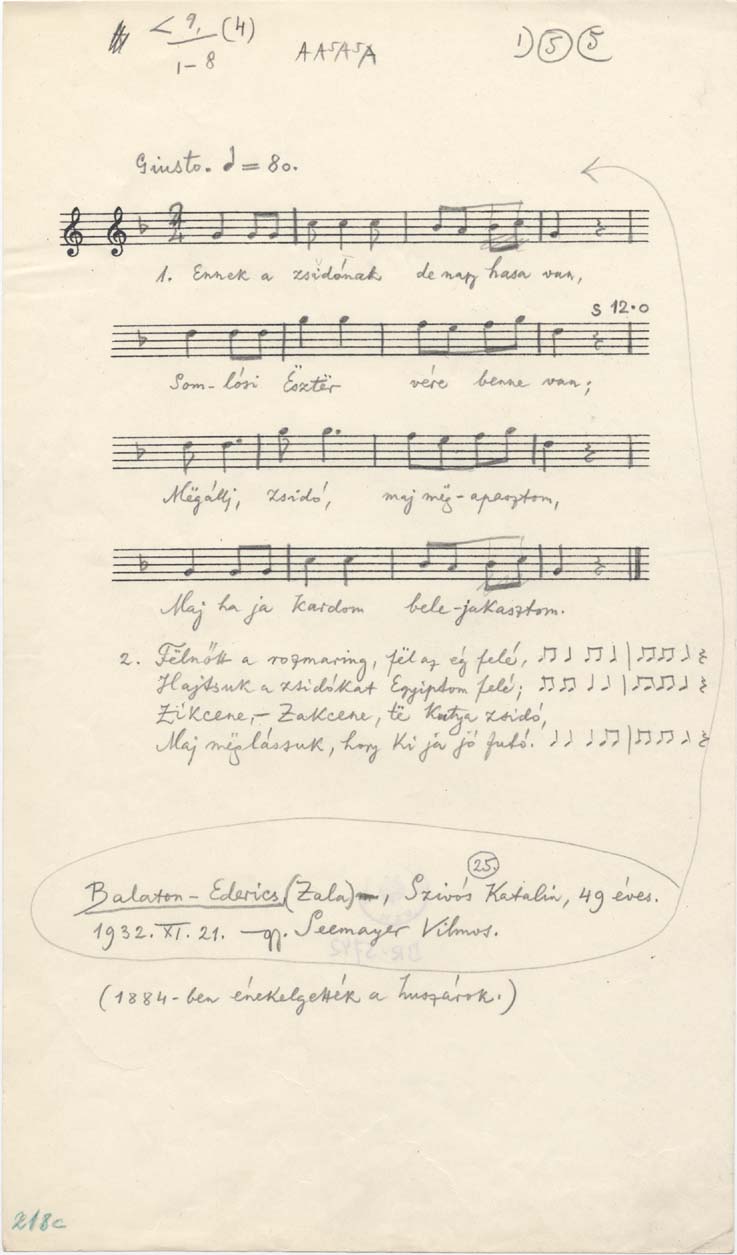 < 9. (4)
1-8
A A⁵ A⁵ A
1) 5 5
Giusto. = 80.
2
4
1. Ennek a zsidónak de nagy hasa van,
S 12.0
Som-lósi Ësztër vére benne van;
Mëgállj, zsidó, maj mëg-apasztom,
Maj ha ja kardom bele-jakasztom.
2. Fëlnőtt a rozmaring, fël az ég felé,
Hajtsuk a zsidókat Egyiptom felé;
Zikcene,- Zakcene, të kutya zsidó,
Maj mëglássuk, hogy ki ja jó futó.
25.
Balaton-Ederics, (Zala), Szívós Katalin, 49 éves.
1932. XI. 21. gy. Seemayer Vilmos.
(1884-ben énekelgették a huszárok.)
218c